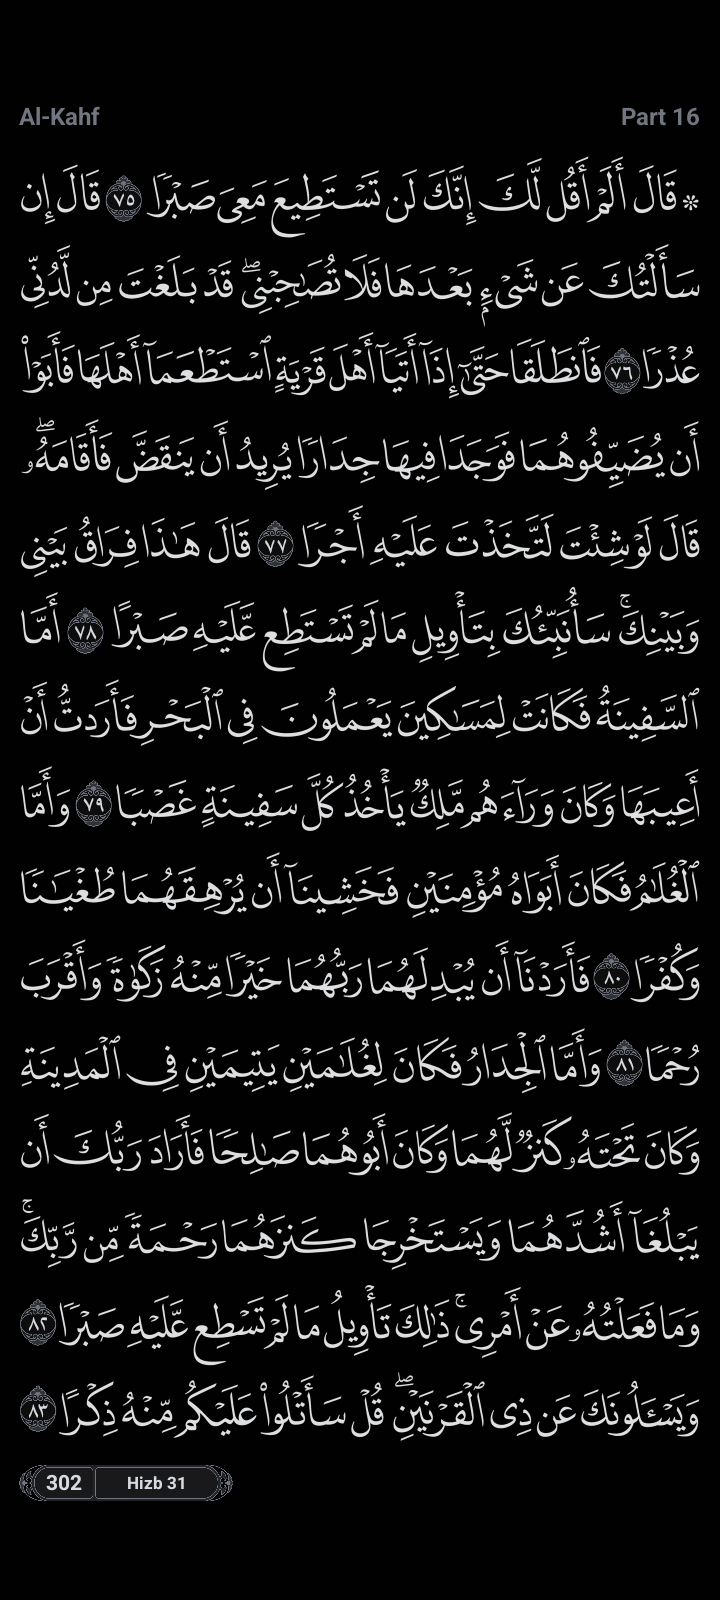 Al-Kahf
Part 16
۞ قَالَ أَلَمْ أَقُل لَّكَ إِنَّكَ لَن تَسْتَطِيعَ مَعِىَ صَبْرًا ٧٥ قَالَ إِن
سَأَلْتُكَ عَن شَىْءٍۭ بَعْدَهَا فَلَا تُصَـٰحِبْنِى ۖ قَدْ بَلَغْتَ مِن لَّدُنِّى
عُذْرًا ٧٦ فَٱنطَلَقَا حَتَّىٰٓ إِذَآ أَتَيَآ أَهْلَ قَرْيَةٍ ٱسْتَطْعَمَآ أَهْلَهَا فَأَبَوْا۟
أَن يُضَيِّفُوهُمَا فَوَجَدَا فِيهَا جِدَارًا يُرِيدُ أَن يَنقَضَّ فَأَقَامَهُۥ ۖ
قَالَ لَوْ شِئْتَ لَتَّخَذْتَ عَلَيْهِ أَجْرًا ٧٧ قَالَ هَـٰذَا فِرَاقُ بَيْنِى
وَبَيْنِكَ ۚ سَأُنَبِّئُكَ بِتَأْوِيلِ مَا لَمْ تَسْتَطِع عَّلَيْهِ صَبْرًا ٧٨ أَمَّا
ٱلسَّفِينَةُ فَكَانَتْ لِمَسَـٰكِينَ يَعْمَلُونَ فِى ٱلْبَحْرِ فَأَرَدتُّ أَنْ
أَعِيبَهَا وَكَانَ وَرَآءَهُم مَّلِكٌ يَأْخُذُ كُلَّ سَفِينَةٍ غَصْبًا ٧٩ وَأَمَّا
ٱلْغُلَـٰمُ فَكَانَ أَبَوَاهُ مُؤْمِنَيْنِ فَخَشِينَآ أَن يُرْهِقَهُمَا طُغْيَـٰنًا
وَكُفْرًا ٨٠ فَأَرَدْنَآ أَن يُبْدِلَهُمَا رَبُّهُمَا خَيْرًا مِّنْهُ زَكَوٰةً وَأَقْرَبَ
رُحْمًا ٨١ وَأَمَّا ٱلْجِدَارُ فَكَانَ لِغُلَـٰمَيْنِ يَتِيمَيْنِ فِى ٱلْمَدِينَةِ
وَكَانَ تَحْتَهُۥ كَنزٌ لَّهُمَا وَكَانَ أَبُوهُمَا صَـٰلِحًا فَأَرَادَ رَبُّكَ أَن
يَبْلُغَآ أَشُدَّهُمَا وَيَسْتَخْرِجَا كَنزَهُمَا رَحْمَةً مِّن رَّبِّكَ ۚ
وَمَا فَعَلْتُهُۥ عَنْ أَمْرِى ۚ ذَٰلِكَ تَأْوِيلُ مَا لَمْ تَسْطِع عَّلَيْهِ صَبْرًا ٨٢
وَيَسْـَٔلُونَكَ عَن ذِى ٱلْقَرْنَيْنِ ۖ قُلْ سَأَتْلُوا۟ عَلَيْكُم مِّنْهُ ذِكْرًا ٨٣
302
Hizb 31